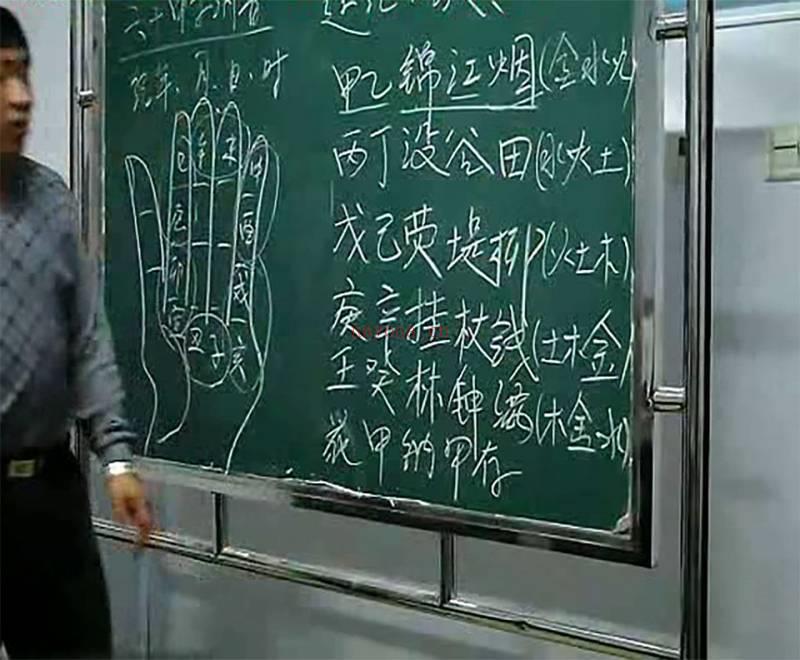 六十甲子纳音
年、月、日、时
甲乙锦江烟(金水火)
丙丁没谷田(水火土)
戊己荧堤柳(火土木)
庚辛挂杖钱(土木金)
壬癸林钟满(木金水)
花甲纳甲存
巳
午
未
申
辰
酉
卯
戌
寅
丑
子
亥